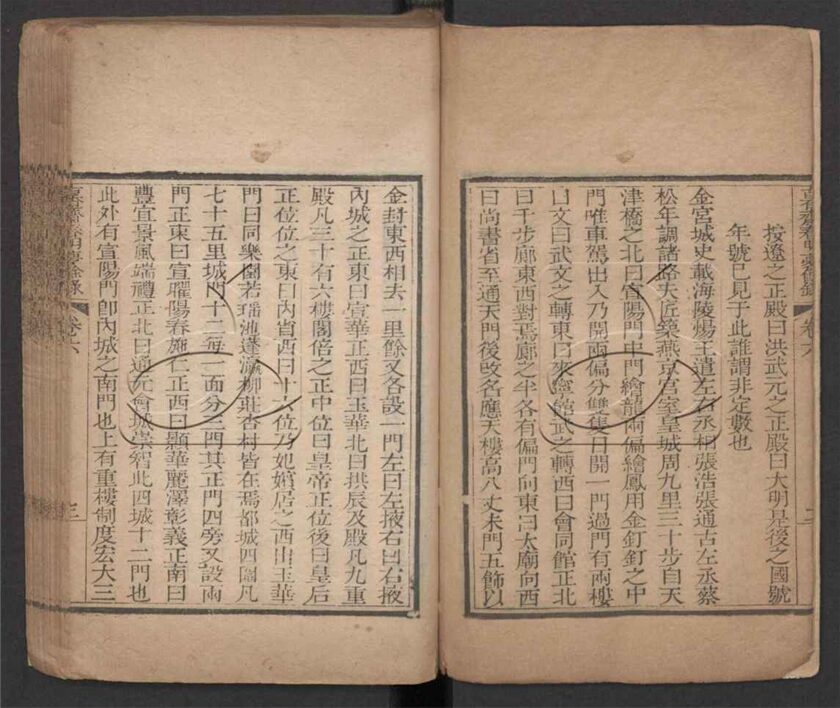 按遼之正殿曰洪武元之正殿曰大明是後之國號
年號已見于此誰謂非定數也
金宮城史載海陵煬王遣左右丞相張浩張通古左丞蔡
松年調諸路夫匠築燕京宮室皇城周九里三十步自天
津橋之北曰宣陽門中門繪龍兩偏繪鳳用金釘釘之中
門唯車駕出入乃開兩偏分雙隻日開一門過門有兩樓
曰文曰武文之轉東曰來寧館武之轉西曰會同館正北
曰千步廊東西對焉廊之半各有偏門向東曰太廟向西
曰尚書省至通天門後改名應天樓高八丈朱門五飾以
金封東西相去一里餘又各設一門左曰左掖右曰右掖
內城之正東曰宣華正西曰玉華北曰拱辰及殿凡九重
殿凡三十有六樓閣倍之正中位曰皇帝正位後曰皇后
正位位之東曰內省西曰十六位乃妃嬪居之西出玉華
門曰同樂園若瑤池蓬瀛柳莊杏村皆在焉都城四圍凡
七十五里城門十二每一面分三門其正門四旁又設兩
門正東曰宣曜陽春施仁正西曰顥華麗澤彰義正南曰
豐宜景風端禮正北曰通元會城崇智此四城十二門也
此外有宣陽門卽內城之南門也上有重樓制度宏大三
卷六
三